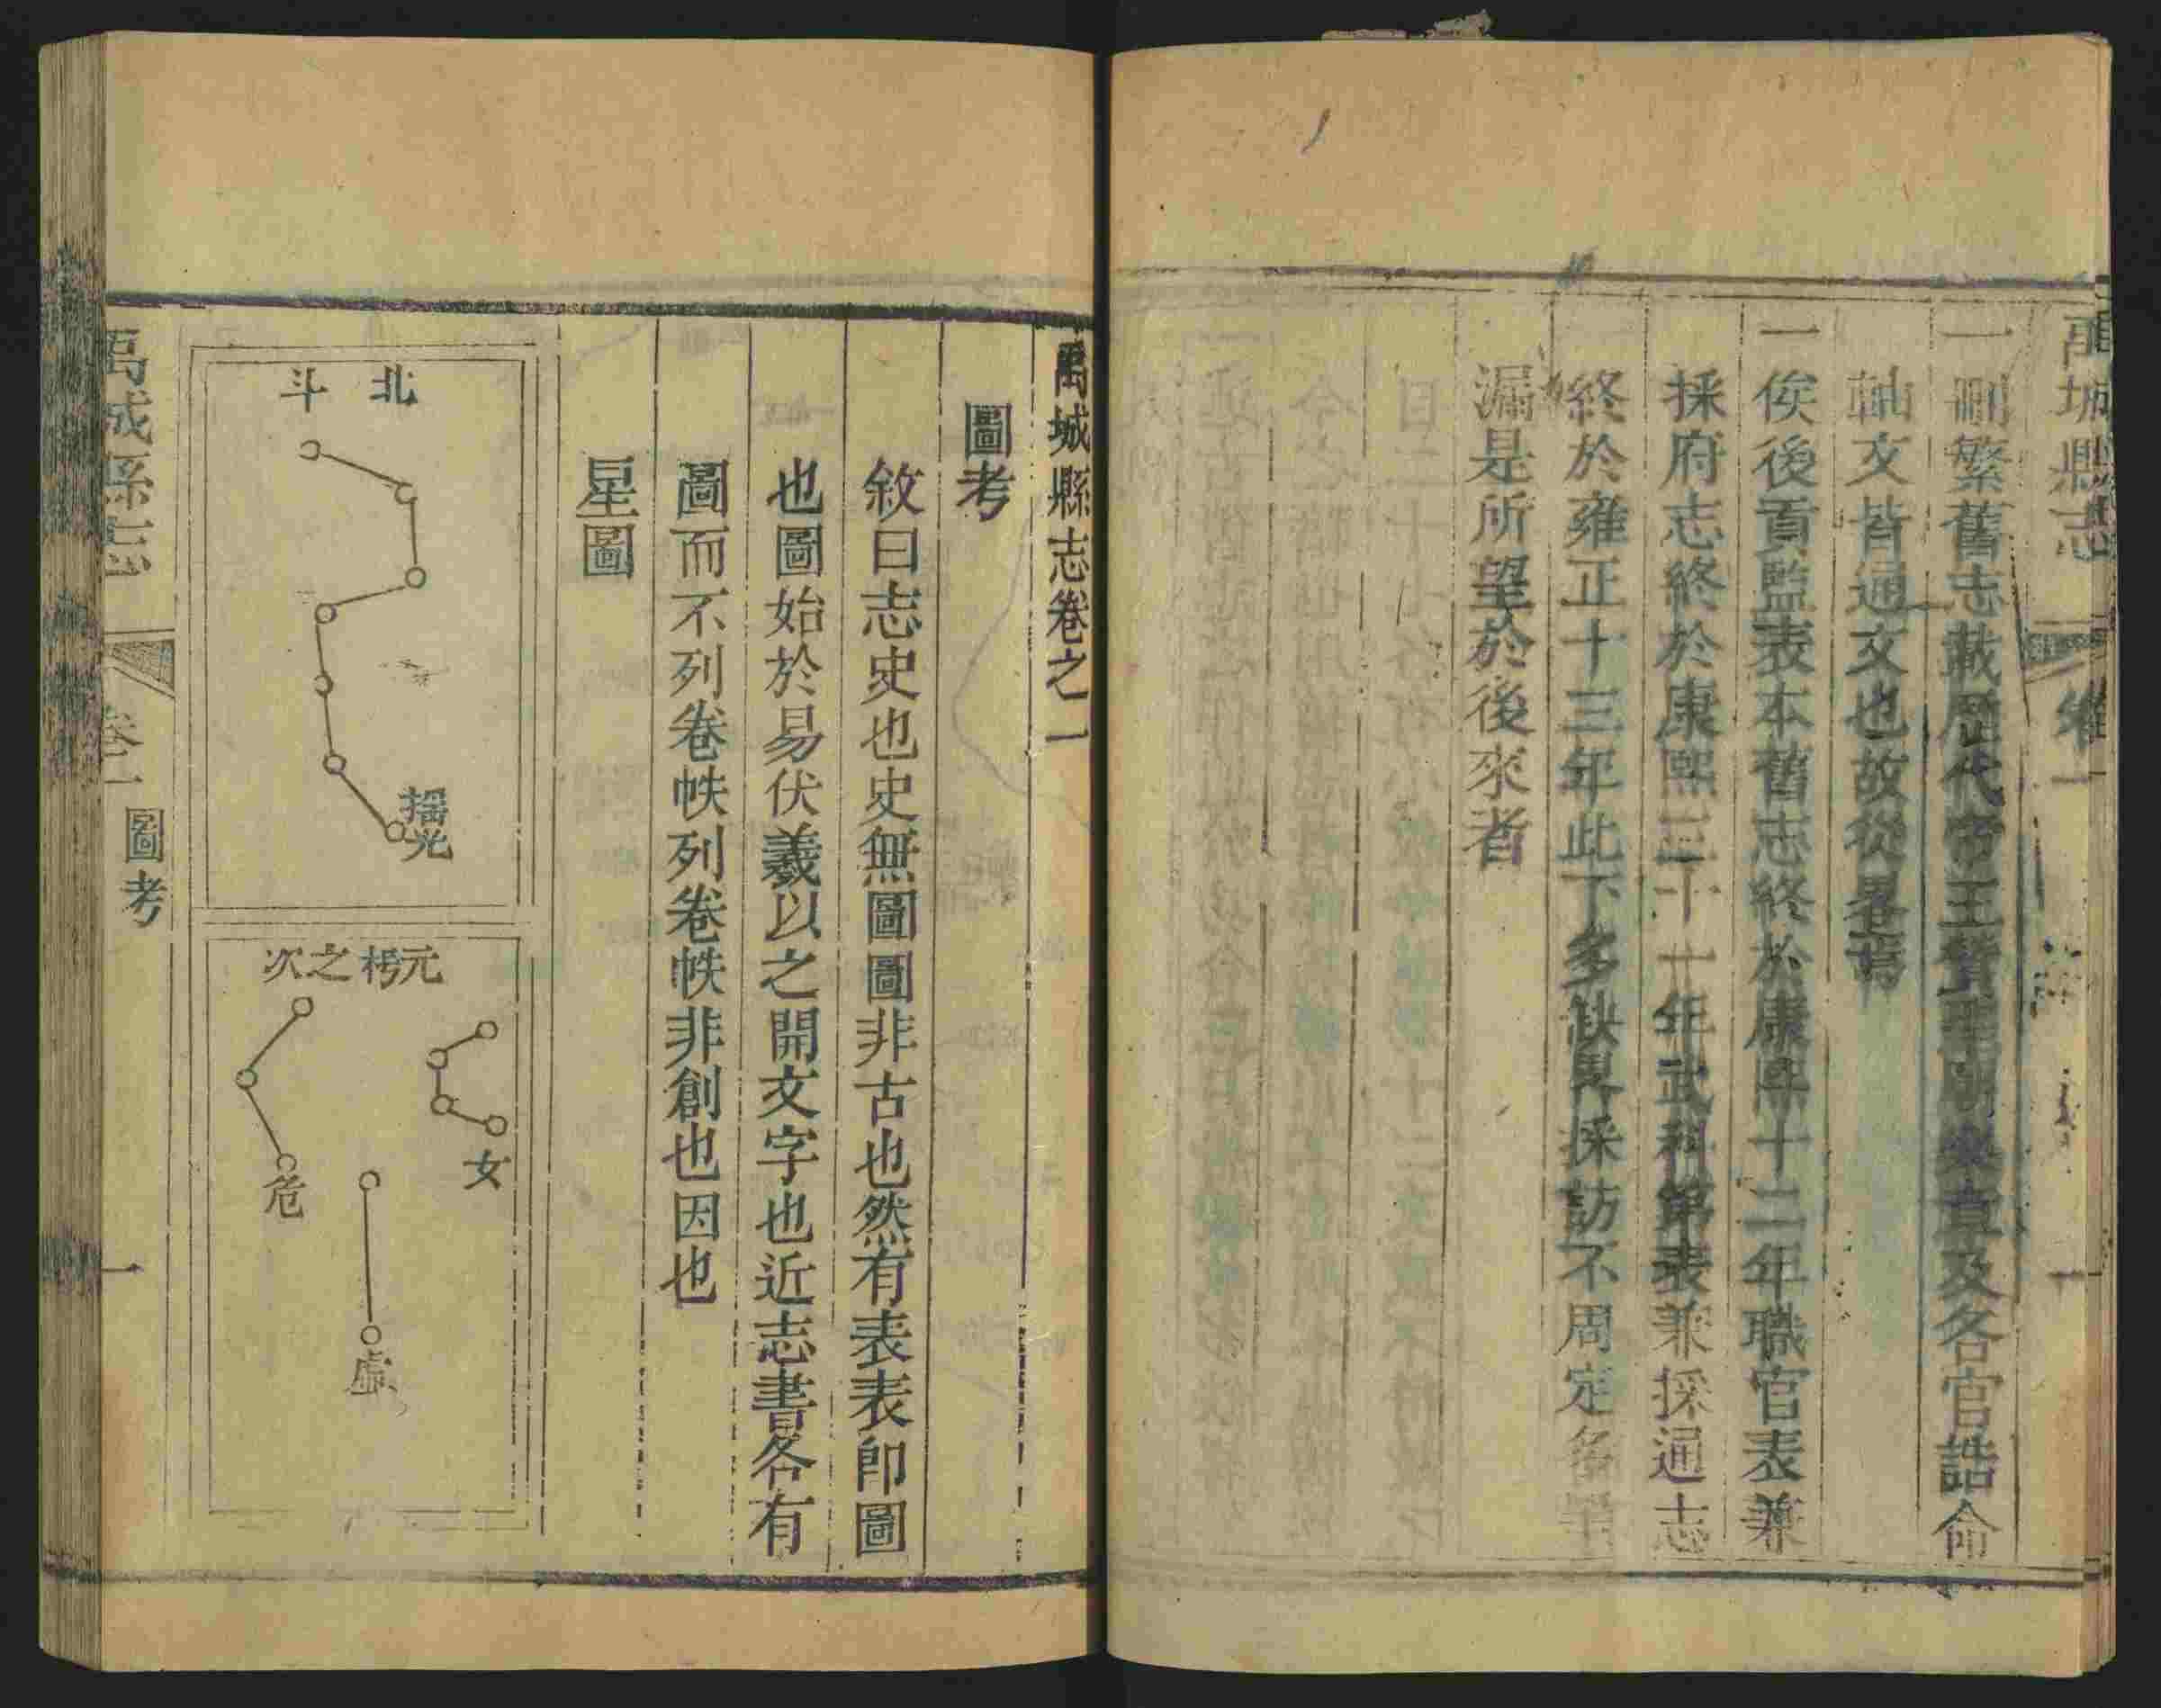 禹城縣志
卷
一
一刪繁舊志載歷代帝王賢聖及各官誥命
軸文皆通文也故從畧焉
一俟後貢監表本舊志終於康熙十二年職官表兼
採府志終於康熙三十一年武科第表兼採通志
終於雍正十三年此下多缺畧採訪不周定多
漏是所望於後來者
禹城縣志卷之一
圖考
敘曰志史也史無圖圖非古也然有表表卽圖
也圖始於易伏羲以之開文字也近志書各有
圖而不列卷帙列卷帙非創也因也
星圖
北斗
搖光
元枵之次
女
虛
危
禹城縣志
卷一
圖考
一